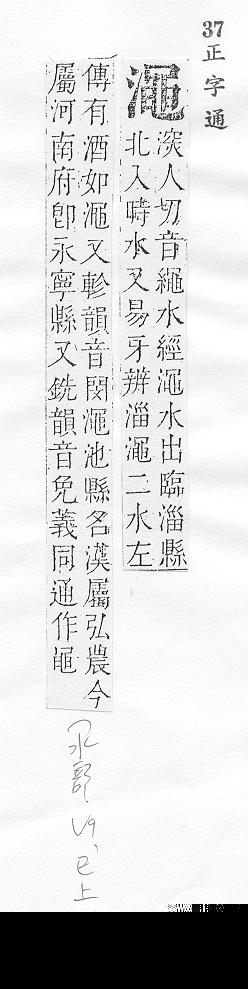 37正字通
澠
湥人切音繩水經澠水出臨淄縣
北入時水又易牙辨淄澠二水左
傳有酒如澠又軫韻音閔澠池縣名漢屬弘農今
屬河南府卽永寧縣又銑韻音免義同通作黽
水部
上